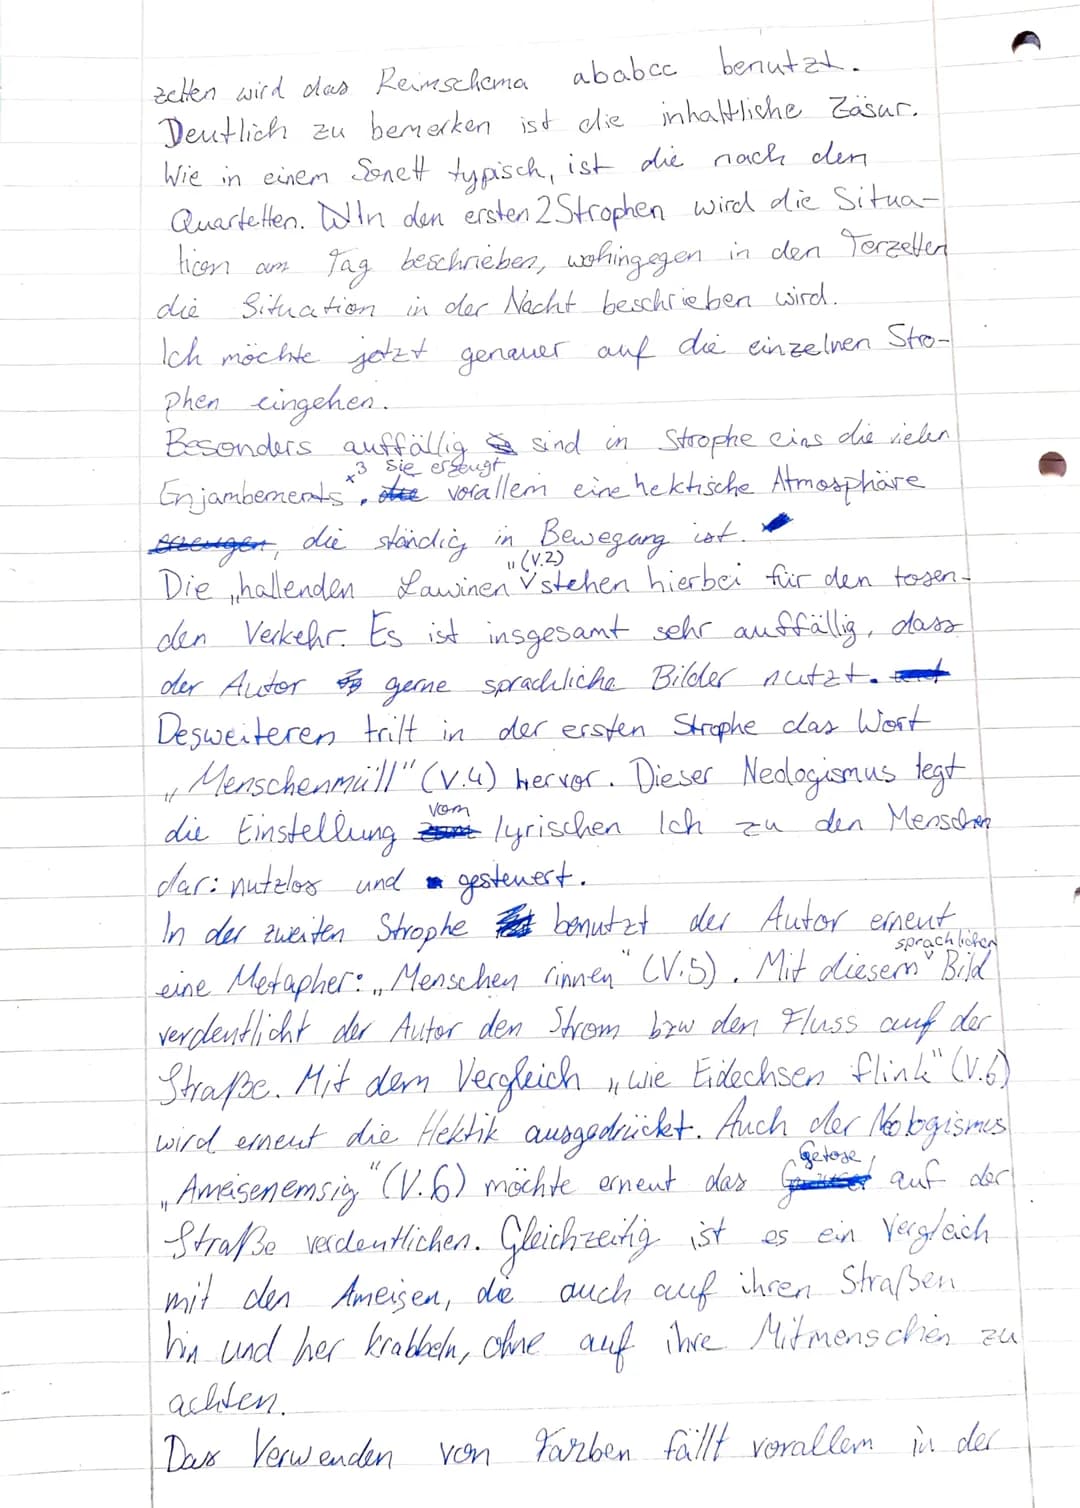 zetten wird das Reimschema ababcc benutzt.
Deutlich zu bemerken ist die inhaltliche Zäsur.
Wie in einem Sonett typisch, ist die nach den
Quartetten. In den ersten 2 Strophen wird die Situa-
tion am Tag beschrieben, wohingegen in den Terzetten
die Situation in der Nacht beschrieben wird.
Ich möchte jetzt genauer auf die einzelnen Stro-
phen eingehen.
Besonders auffällig sind in Strophe eins die vielen
x3 sie erzeugt
Enjambements, vorallem eine hektische Atmosphäre
, die ständig in Bewegung ist.
Die „hallenden Lawinen" (V.2) stehen hierbei für den tosen-
den Verkehr. Es ist insgesamt sehr auffällig, dass
der Autor gerne sprachliche Bilder nutzt.
Desweiteren tritt in der ersten Strophe das Wort
„Menschenmüll" (V.4) hervor. Dieser Neologismus legt
die Einstellung vom lyrischen Ich zu den Menschen
dar: nutzlos und gesteuert.
In der zweiten Strophe benutzt der Autor erneut
eine Metapher: „Menschen rinnen" (V.5). Mit diesem sprachlichen Bild
verdeutlicht der Autor den Strom bzw den Fluss auf der
Straße. Mit dem Vergleich „wie Eidechsen flink" (V.6)
wird erneut die Hektik ausgedrückt. Auch der Neologismus
„Ameisenemsig" (V.6) möchte erneut das Getose auf der
Straße verdeutlichen. Gleichzeitig ist es ein Vergleich
mit den Ameisen, die auch auf ihren Straßen
hin und her krabbeln, ohne auf ihre Mitmenschen zu
achten.
Das Verwenden von Farben fällt vorallem in der